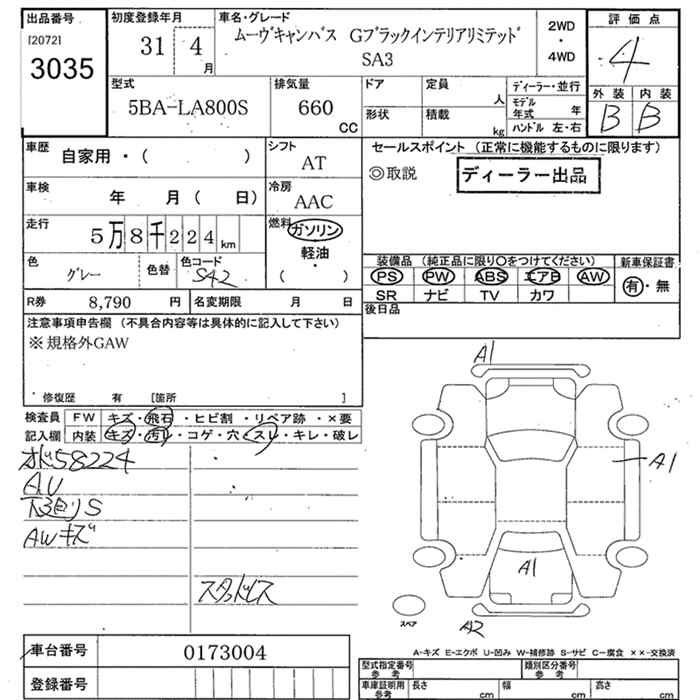 出品番号
[2072]
3035
初度登録年月
31 4 月
車名・グレード
ムーヴキャンバス Gブラックインテリアリミテッド
SA3
2WD
・
4WD
評価点
4
外装 内装
B B
型式
5BA-LA800S
排気量
660 CC
ドア
形状
定員 人
積載 kg
ディーラー・並行
モデル年式 年
ハンドル 左・右
車歴
自家用・( )
シフト
AT
セールスポイント (正常に機能するものに限ります)
◎取説
ディーラー出品
車検
年 月 ( 日)
冷房
AAC
走行
5万8千224km
燃料
ガソリン
・
軽油
・
( )
色
グレー
色替
色コード
S42
装備品 (純正品に限り○をつけてください)
新車保証書
PS PW ABS エアB AW
有・無
SR ナビ TV カワ
R券 8,790 円
名変期限 月 日
後日品
注意事項申告欄 (不具合内容等は具体的に記入して下さい)
※規格外GAW
修復歴 有 [箇所 ]
検査員
記入欄
FW キズ・飛石・ヒビ割・リペア跡・×要
内装 キズ・汚レ・コゲ・穴・スレ・キレ・破レ
58224
AU
S
AWキズ
スタッドレス
A1
A1
A1
A2
スペア
A-キズ E-エクボ U-凹み W-補修跡 S-サビ C-腐食 ××-交換済
車台番号 0173004
登録番号
型式指定番号
参考
類別区分番号
参考
車庫証明用
参考
長さ cm
幅 cm
高さ cm